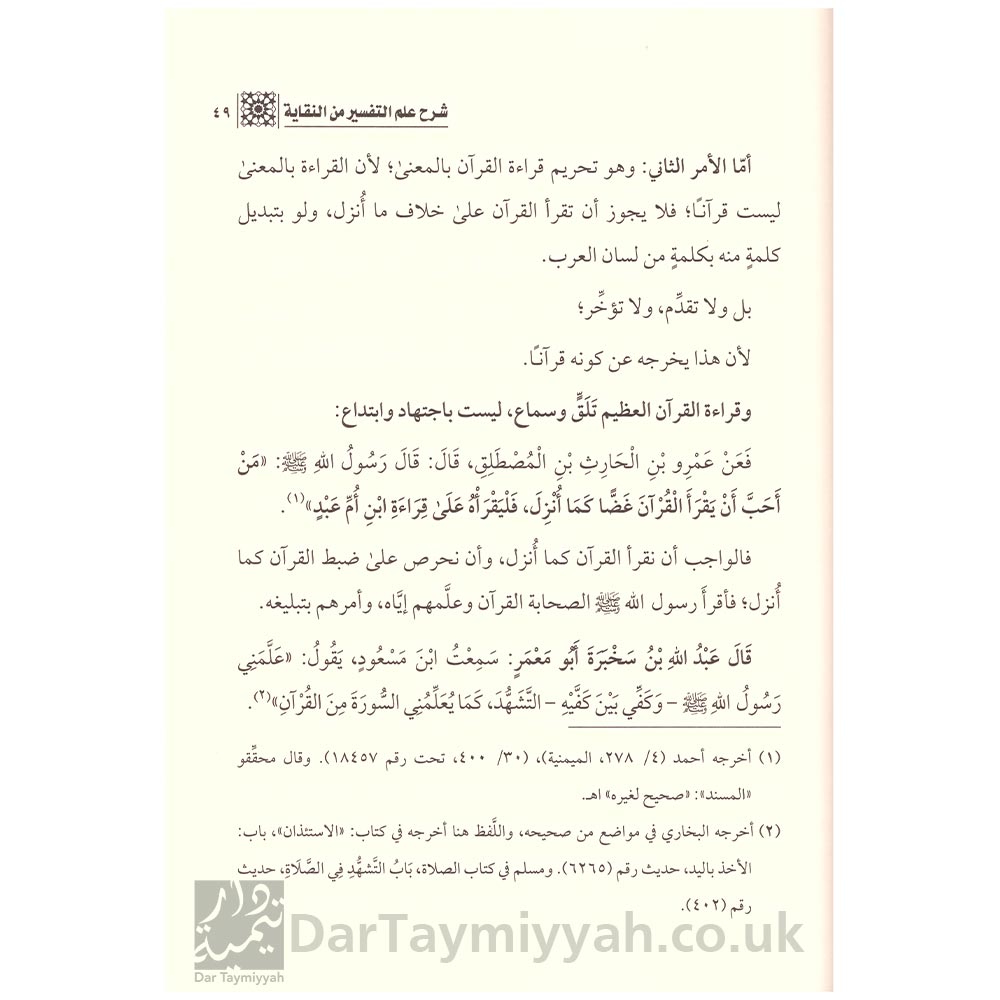 شرح علم التفسير من النقاية ٤٩
أمّا الأمر الثاني: وهو تحريم قراءة القرآن بالمعنىٰ؛ لأن القراءة بالمعنىٰ
ليست قرآنًا؛ فلا يجوز أن تقرأ القرآن علىٰ خلاف ما أُنزل، ولو بتبديل
كلمةٍ منه بكلمةٍ من لسان العرب.
بل ولا تقدِّم، ولا تؤخِّر؛
لأن هذا يخرجه عن كونه قرآنًا.
وقراءة القرآن العظيم تَلَقٍّ وسماع، ليست باجتهاد وابتداع:
فَعَنْ عَمْرِو بْنِ الْحَارِثِ بْنِ الْمُصْطَلِقِ، قَالَ: قَالَ رَسُولُ اللهِ ﷺ: «مَنْ
أَحَبَّ أَنْ يَقْرَأَ الْقُرْآنَ غَضًّا كَمَا أُنْزِلَ، فَلْيَقْرَأْهُ عَلَىٰ قِرَاءَةِ ابْنِ أُمِّ عَبْدٍ»(١).
فالواجب أن نقرأ القرآن كما أُنزل، وأن نحرص علىٰ ضبط القرآن كما
أُنزل؛ فأقرأَ رسول الله ﷺ الصحابة القرآن وعلَّمهم إيَّاه، وأمرهم بتبليغه.
قَالَ عَبْدُ اللهِ بْنُ سَخْبَرَةَ أَبُو مَعْمَرٍ: سَمِعْتُ ابْنَ مَسْعُودٍ، يَقُولُ: «عَلَّمَنِي
رَسُولُ اللهِ ﷺ – وَكَفِّي بَيْنَ كَفَّيْهِ – التَّشَهُّدَ، كَمَا يُعَلِّمُنِي السُّورَةَ مِنَ الْقُرْآنِ»(٢).
(١) أخرجه أحمد (٤/ ٢٧٨، الميمنية)، (٣٠/ ٤٠٠، تحت رقم ١٨٤٥٧). وقال محقِّقو
«المسند»: «صحيح لغيره» اهـ.
(٢) أخرجه البخاري في مواضع من صحيحه، واللَّفظ هنا أخرجه في كتاب: «الاستئذان»، باب:
الأخذ باليد، حديث رقم (٦٢٦٥). ومسلم في كتاب الصلاة، بَابُ التَّشهُّدِ فِي الصَّلَاةِ، حديث
رقم (٤٠٢).
دار تيمية
Dar Taymiyyah
DarTaymiyyah.co.uk